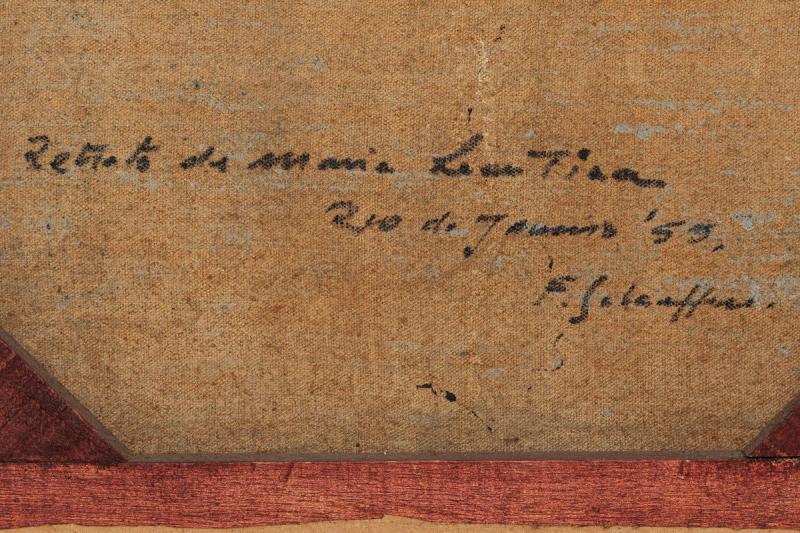 Retrato de Maria Leontina
Rio de Janeiro '55.
F. Schaeffer.